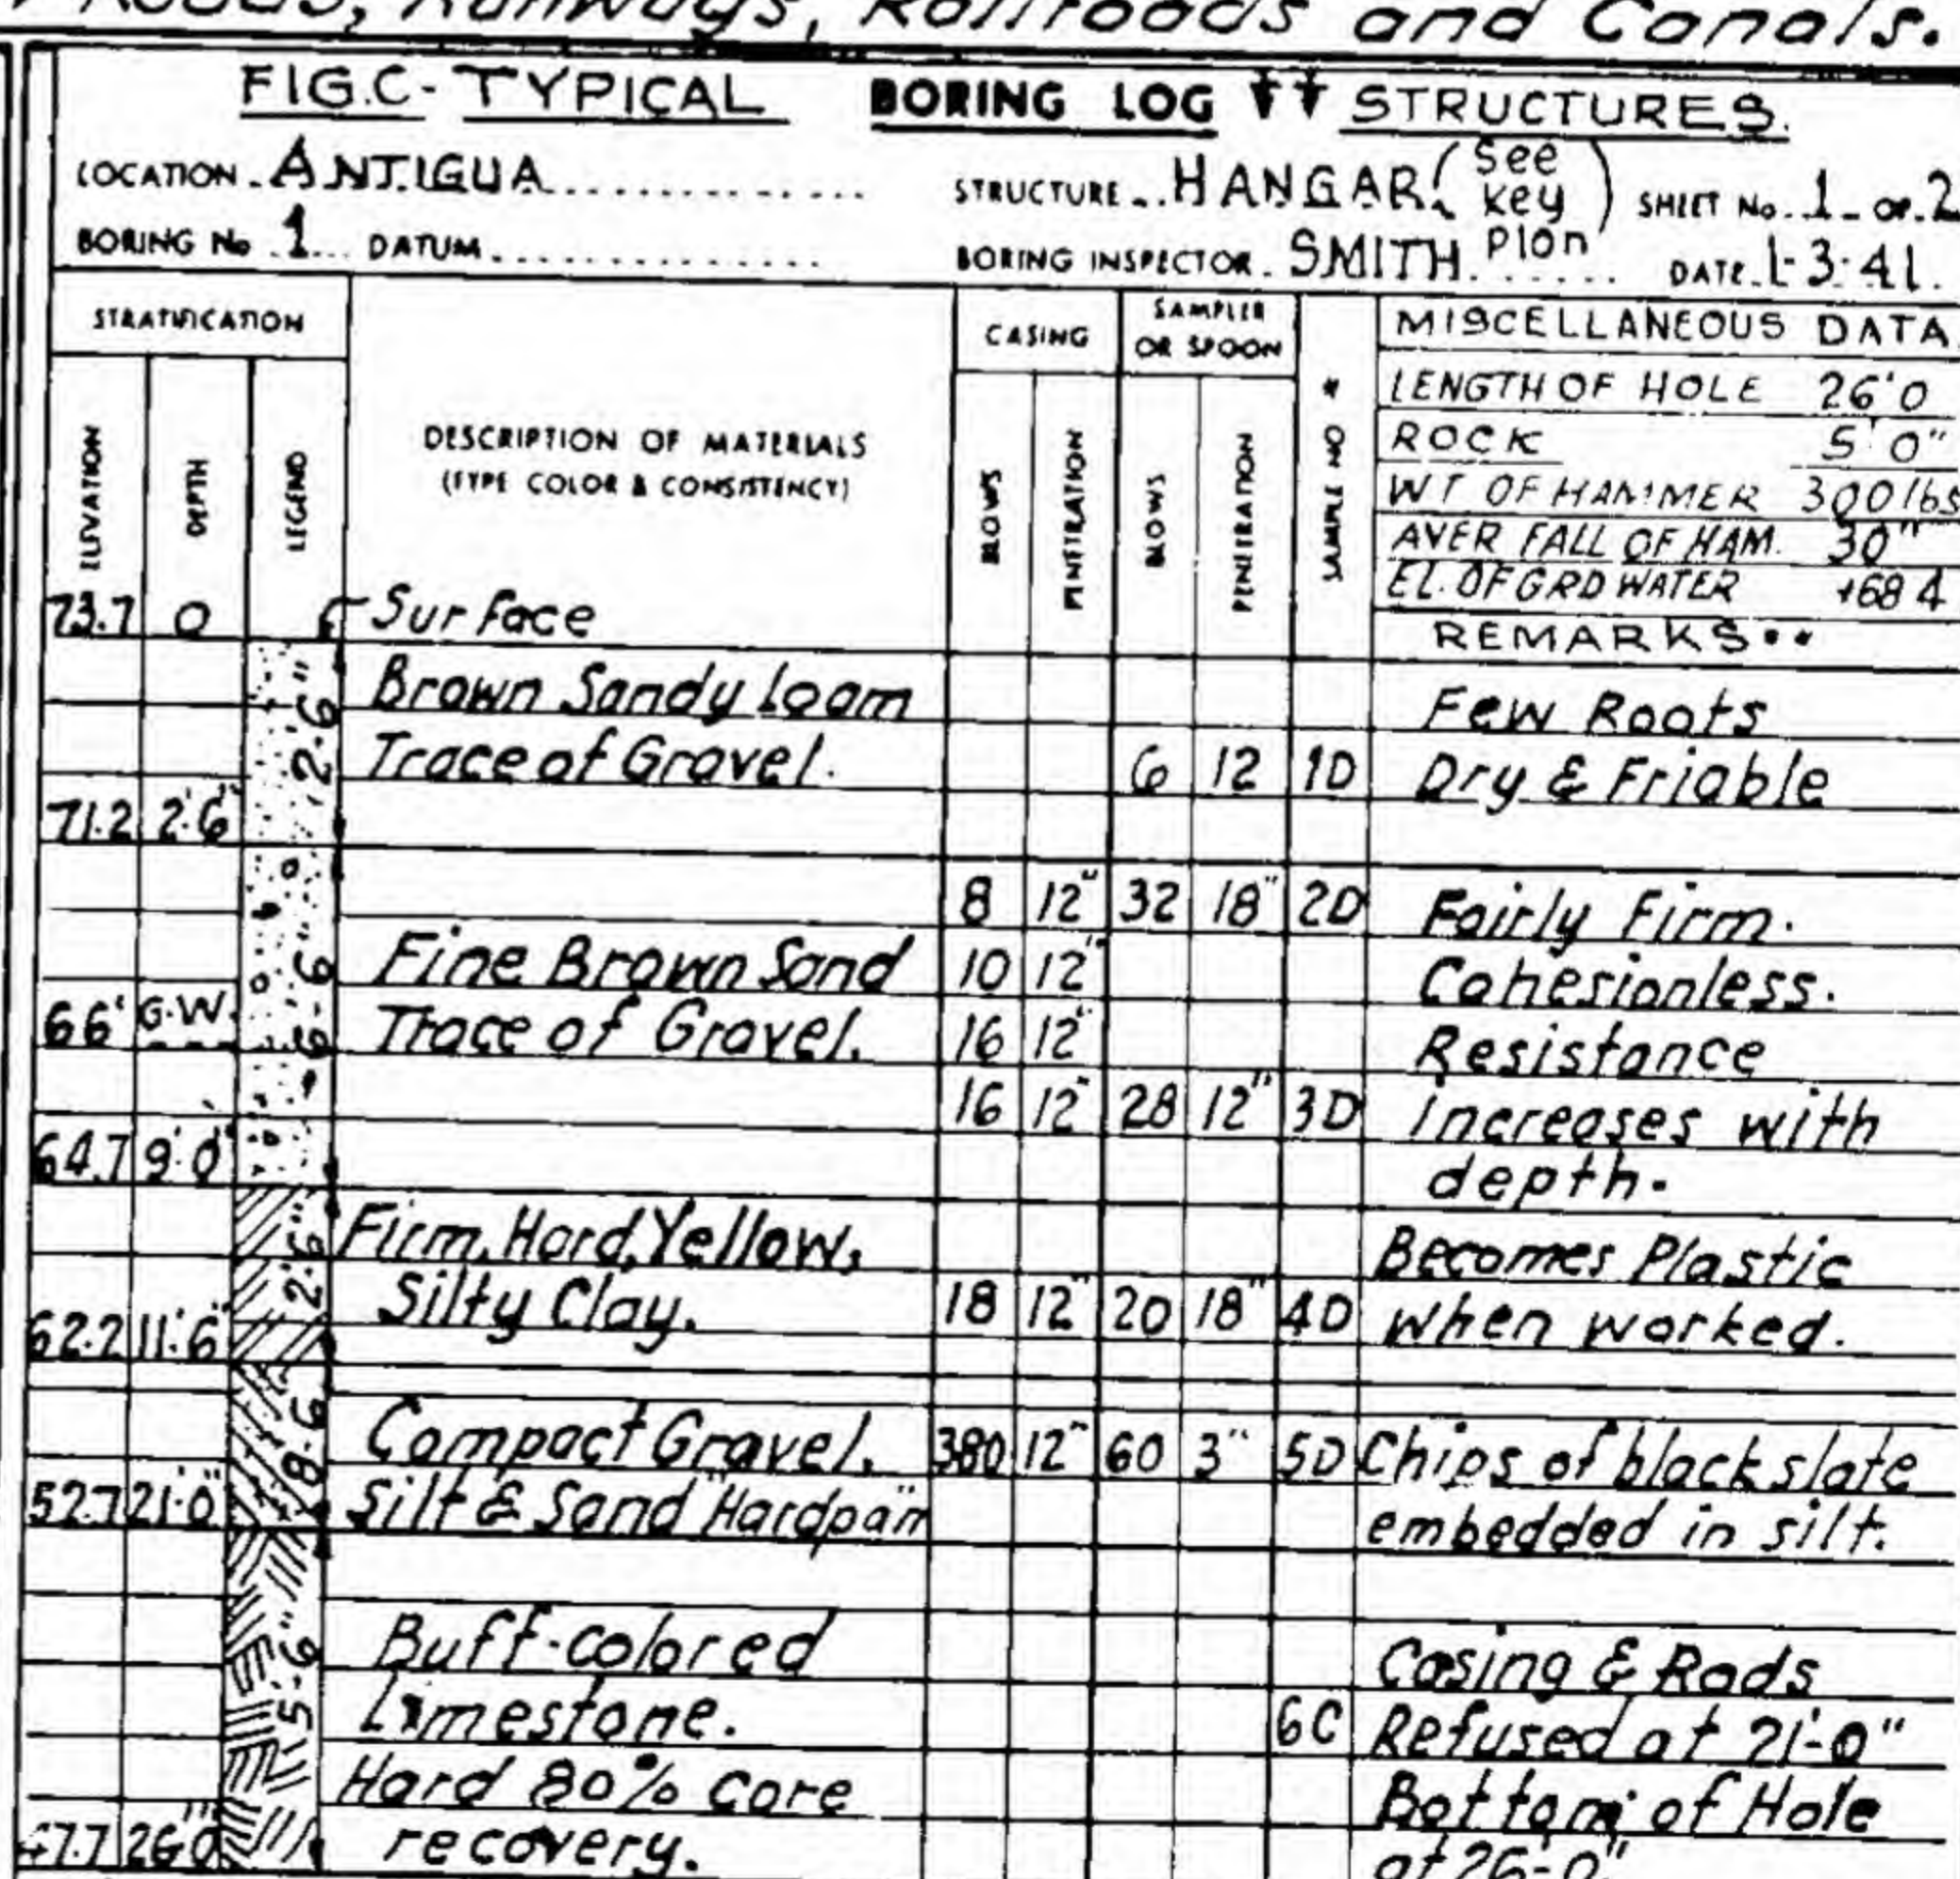 Roads, Runways, Railroads and Canals.
FIG.C- TYPICAL BORING LOG STRUCTURES.
LOCATION. ANTIGUA STRUCTURE HANGAR (See Key Plan) SHEET No. 1 OF 2
BORING No 1 DATUM BORING INSPECTOR. SMITH DATE. 1-3-41.
STRATIFICATION
ELEVATION DEPTH LEGEND
DESCRIPTION OF MATERIALS
(TYPE COLOR & CONSISTENCY)
CASING
BLOWS PENETRATION
SAMPLER OR SPOON
BLOWS PENETRATION
SAMPLE NO *
MISCELLANEOUS DATA
LENGTH OF HOLE 26'0
ROCK 5'0"
WT OF HAMMER 300 lbs
AVER FALL OF HAM. 30"
EL. OF GRD WATER +68 4
REMARKS
73.7 0 Surface
Brown Sandy Loam Few Roots
2'-6" Trace of Gravel. 6 12 1D Dry & Friable
71.2 2'6"
8 12" 32 18" 2D Fairly Firm.
Fine Brown Sand 10 12" Cohesionless.
66' G.W. 6-6 Trace of Gravel. 16 12" Resistance
16 12" 28 12" 3D increases with
64.7 9'0" depth.
Firm, Hard, Yellow, Becomes Plastic
2'-6" Silty Clay. 18 12" 20 18" 4D when worked.
62.2 11'6"
8-6 Compact Gravel. 380 12" 60 3" 5D Chips of black slate
52.7 21'0" Silt & Sand "Hardpan" embedded in silt.
Buff-colored Casing & Rods
5-6" Limestone. 6C Refused at 21'-0"
Hard 80% core Bottom of Hole
47.7 26'0" recovery. at 26'-0"